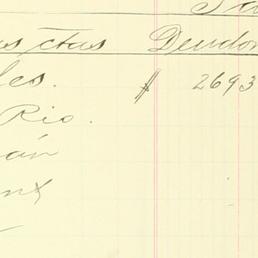 us ctas Deudor
les. $ 2693
Rio.
án